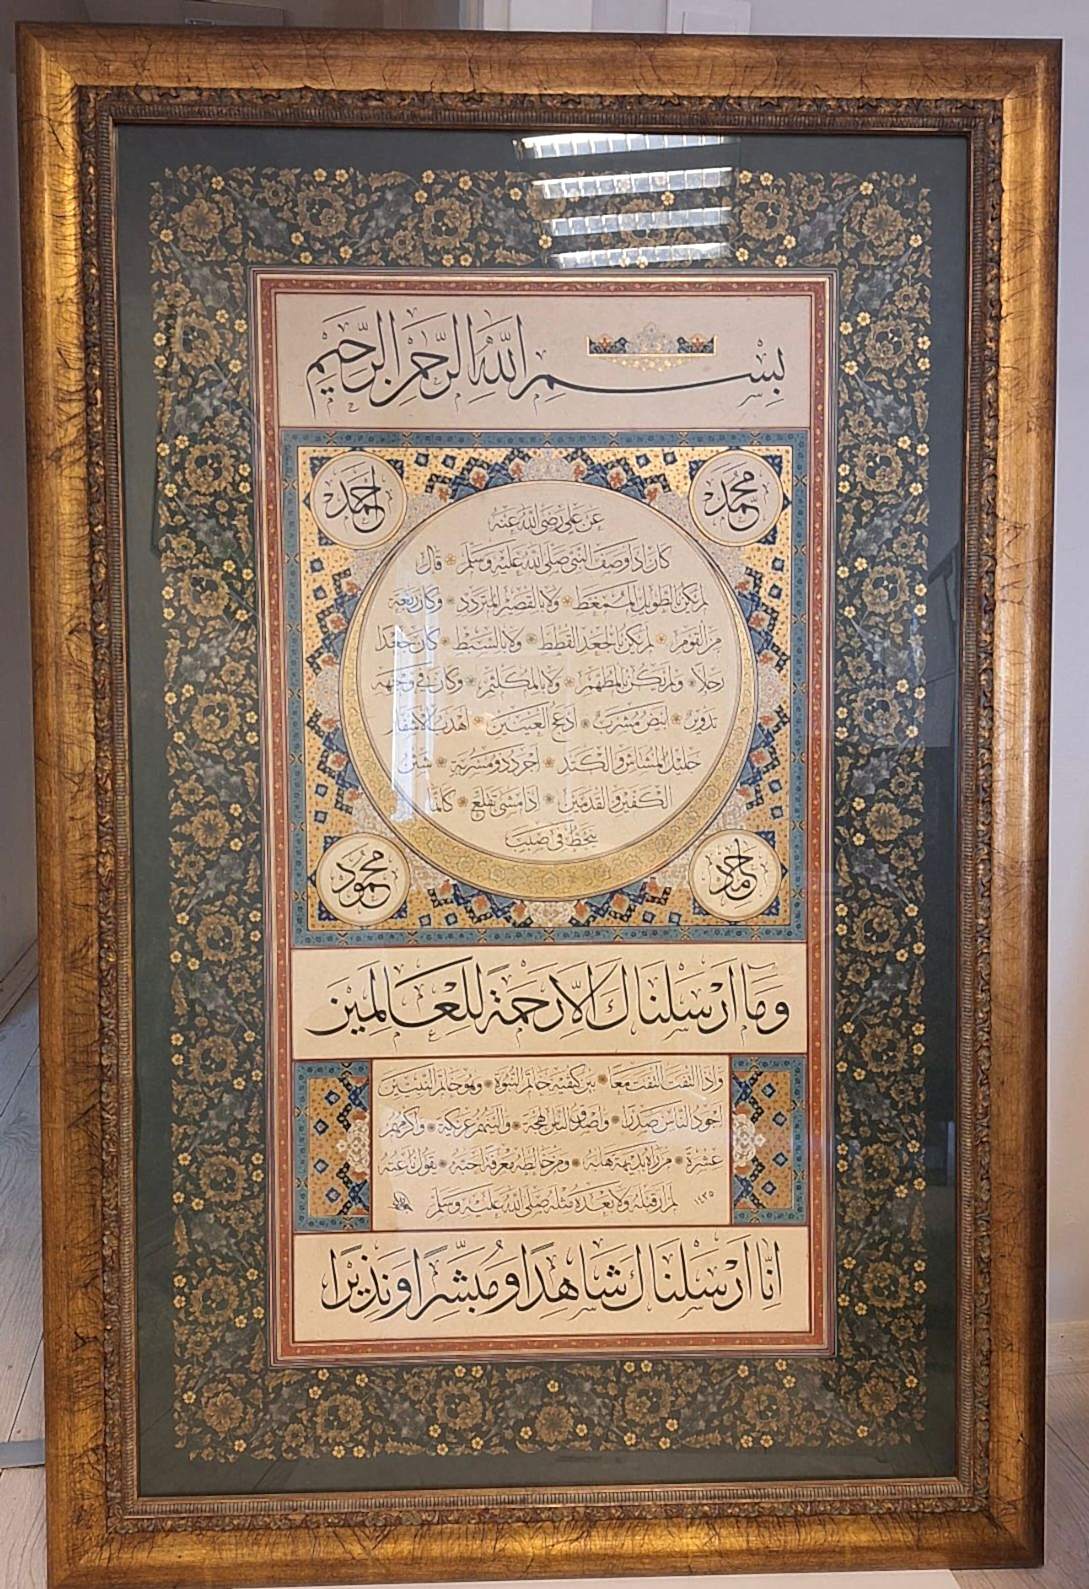 بِسْمِ اللّٰهِ الرَّحْمٰنِ الرَّحِيْمِ
محمد
احمد
عن علي رضي الله عنه
كان اذا وصف النبي صلى الله عليه وسلم قال
لم يكن بالطويل الممغط ولا بالقصير المتردد وكان ربعة
من القوم لم يكن بالجعد القطط ولا بالسبط كان جعدا
رجلا ولم يكن بالمطهم ولا بالمكلثم وكان في وجهه
تدوير ابيض مشرب ادعج العينين اهدب الاشفار
جليل المشاش والكتد اجرد ذو مسربة شثن
الكفين والقدمين اذا مشى تقلع كانما
ينحط في صبب
حامد
محمود
وَمَا اَرْسَلْنَاكَ اِلَّا رَحْمَةً لِلْعَالَمِينَ
واذا التفت التفت معا بين كتفيه خاتم النبوة وهو خاتم النبيين
اجود الناس صدرا واصدق الناس لهجة والينهم عريكة واكرمهم
عشرة من رآه بديهة هابه ومن خالطه معرفة احبه يقول ناعته
لم ار قبله ولا بعده مثله صلى الله عليه وسلم ١٤٣٥
اِنَّا اَرْسَلْنَاكَ شَاهِدًا وَمُبَشِّرًا وَنَذِيرًا